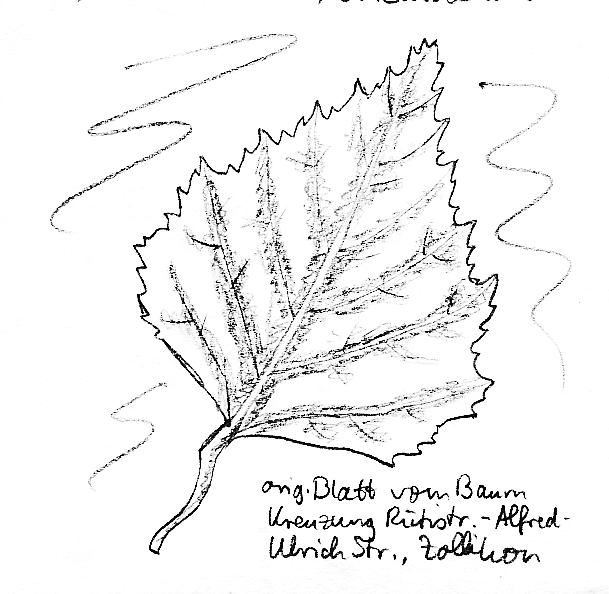 orig. Blatt vom Baum
Kreuzung Rütistr.-Alfred-
Ulrich Str., Zollikon